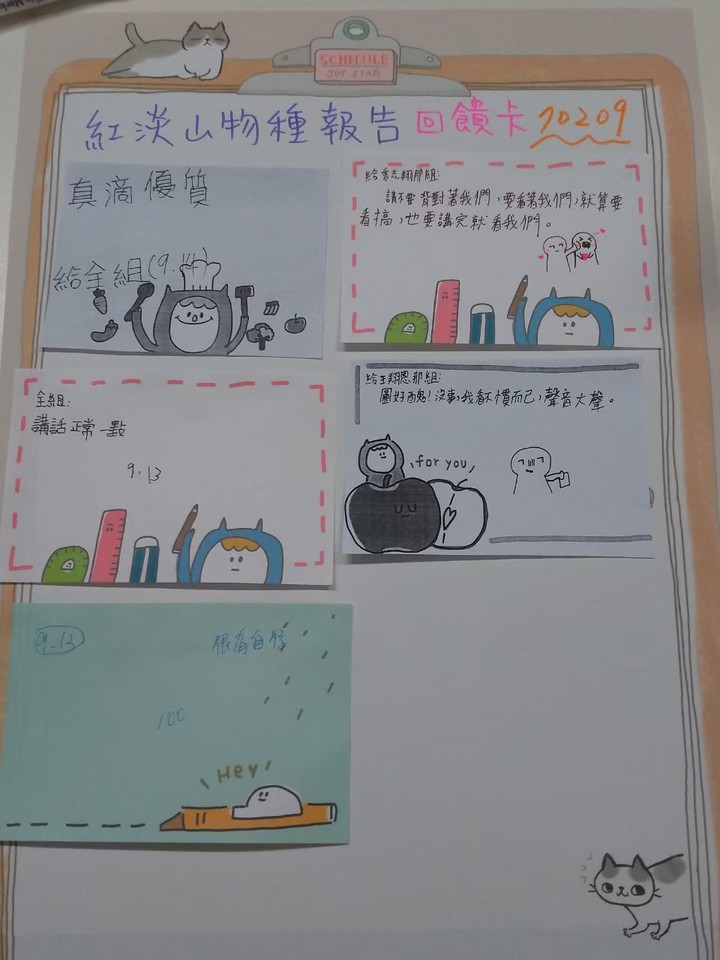 SCHEDULE
JOY STAR
紅淡山物種報告回饋卡 70209
真滴優質
給全組(9.14)
翔那組:
請不要背對著我們,要看著我們,就算要
看搞,也要講完就看我們。
全組:
講話正常一點
9.13
給王翔恩那組:
圖好酷!沒事,我看不慣而已,聲音大聲。
for you
9.13
很有自信
100
Hey